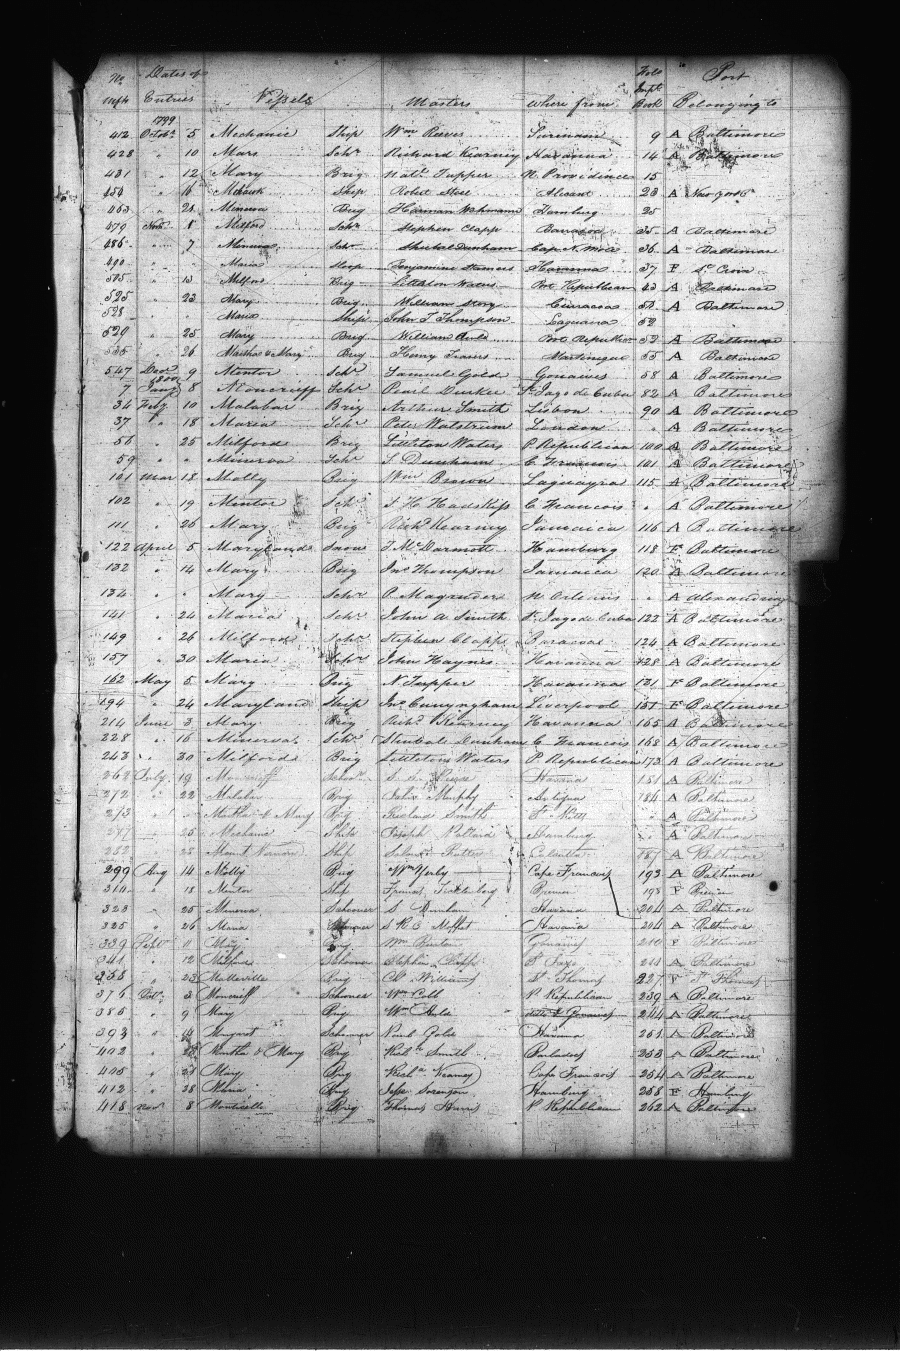 No Dates of Folo Port
Entries Vessels Masters where from Book Belonging to
1799
412 Octobr 5 Mechanic Ship Wm Reeves Surinam 9 A Baltimore
428 " 10 Mars Schr Richard Kearney Havanna 14 A Baltimore
431 " 12 Mary Brig Natl. Tupper N. Providence 15
454 " 16 Mohawk Ship Robert Steel Alicant 23 A New york
463 " 24 Minerva Brig Harman Hamburg 25
479 Novr 1 Milford Schr Stephen Clapp Barracoa 35 A Baltimore
486 " 7 Minerva Schr Dunham Cape N. Mole 36 A Baltimore
490 " Maria Sloop Benjamine Havanna 37 F St Croix
505 " 13 Milford Brig Littleton Waters Port Republican 43 A Baltimore
525 " 23 Mary Brig William Story Curracoa 50 A Baltimore
528 " Maria Ship John T Thompson Laguaira 52
529 " 25 Mary Brig William Port Republican 52 A Baltimore
535 " 26 Martha & Mary Brig Henry Martinique 55 A Baltimore
547 Decr 9 Mentor Schr Samuel Gold Gonaives 58 A Baltimore
1800
7 Jany 8 Moncrieff Schr Pearl Durkee St Jago de Cuba 82 A Baltimore
34 Feby 10 Malabar Brig Arthur Smith Lisbon 90 A Baltimore
37 " 18 Maria Schr Peter Watstrum London " A Baltimore
56 " 25 Milford Brig Littleton Waters P. Republican 100 A Baltimore
59 " " Minerva Schr S. Dunham C. Francois 101 A Baltimore
101 Mar 18 Molly Brig Wm Brown Laguayra 115 A Baltimore
102 " 19 Mentor Schr S. H. Hadskiss C Francois " A Baltimore
111 " 26 Mary Brig Richd Kearney Jamaica 116 A Baltimore
122 April 5 Maryland Snow J. McDarmott Hamburg 118 F Baltimore
132 " 14 Mary Brig Jno Thompson Jamaica 120 A Baltimore
134 " " Mary Schr O Magruder N Orleans " A Alexandria
141 " 24 Maria Schr John A Smith St Jago de Cuba 122 A Baltimore
149 " 26 Milford Schr Stephen Clapp Baracoa 124 A Baltimore
157 " 30 Maria Schr John Haynes Havanna 128 A Baltimore
162 May 5 Mary Brig N Tupper Havanna 131 F Baltimore
194 " 24 Maryland Ship Jno Cunnyngham Liverpool 151 F Baltimore
214 June 3 Mary Brig Richd Kearney Havanna 165 A Baltimore
228 " 16 Minerva Schr Dunham C Francois 168 A Baltimore
243 " 30 Milford Brig Littleton Waters P Republican 173 A Baltimore
262 July 19 Moncrieff Schoonr Havana 181 A Baltimore
272 " 22 Malabar Brig John Murphy Antigua 184 A Baltimore
273 " " Martha & Mary Brig Richard Smith St Kitts " A Baltimore
277 " 25 Mechanic Ship Joseph Hamburg " A Baltimore
282 " 28 Mount Vernon Ship Calcutta 187 A Baltimore
299 Aug 14 Molly Brig Wm Yerby Cape Francois 193 A Baltimore
310 " 18 Mentor Ship Francis Bremen 198 F Bremen
323 " 25 Minerva Schooner S Dunham Havana 204 A Baltimore
325 " 26 Maria Schooner S H B Moffet Havana 204 A Baltimore
339 Septr 11 Mary Brig Wm Gonaives 210 F Baltimore
341 " 12 Milford Schooner Stephen Clapp St Jago 211 A Baltimore
358 " 23 Brig Ch Williams St Thomas 227 F St Thomas
376 Octr 3 Moncrieff Schooner Wm Cobb P Republican 239 A Baltimore
385 " 9 Mary Brig Wm 244 A Baltimore
393 " 14 Margaret Schooner Paul Havana 251 A Baltimore
402 " Martha & Mary Brig Richd Smith Barbados 253 A Baltimore
405 " 21 Mary Brig Richd Kearney Cape Francois 254 A Baltimore
412 " 28 Maria Brig Jesse Sorenson Hamburg 258 F Hamburg
418 Novr 8 Monticello Brig Thomas Harris P Republican 262 A Baltimore